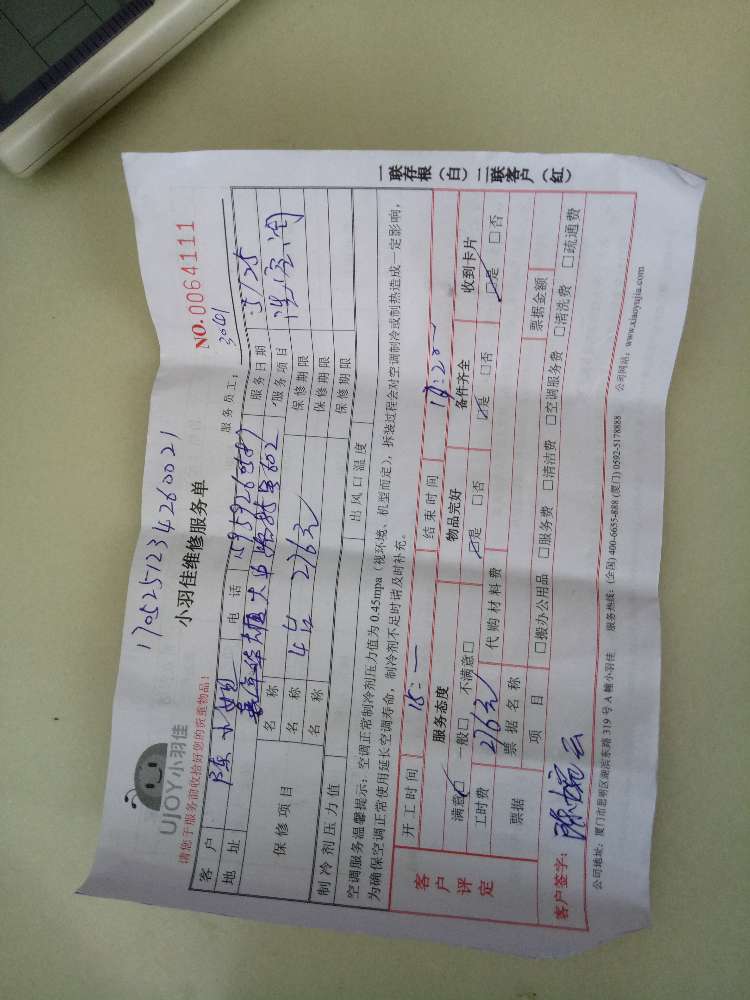 1705251234260021
UJOY小羽佳
小羽佳维修服务单
NO.0064111
请您于服务前收拾好您的贵重物品!
服务员工: 3041
客户 陈小姐 电话 服务日期 5/25
地址 602 服务项目 洗空调
保修项目 名称 保修期限
名称 4台 276元 保修期限
名称 保修期限
制冷剂压力值 出风口温度
空调服务温馨提示:空调正常制冷剂压力值为 0.45mpa(视环境、机型而定),拆装过程会对空调制冷或制热造成一定影响,
为确保空调正常使用延长空调寿命,制冷剂不足时请及时补充。
客户评定
开工时间 15: 结束时间
服务态度 物品完好 备件齐全 收到卡片
满意☑ 一般□ 不满意□ ☑是 □否 ☑是 □否 ☑是 □否
工时费 276元 代购材料费
票据 票据名称 票据金额
项目 □搬办公用品 □服务费 □清洁费 □空调服务费 □清洗费 □疏通费
客户签字:
公司地址:厦门市思明区湖滨东路 319 号 A 幢小羽佳 服务热线:(全国) 400-6655-888 (厦门) 0592-5178888 公司网站:www.xiaoyujia.com
一联存根(白)二联客户(红)